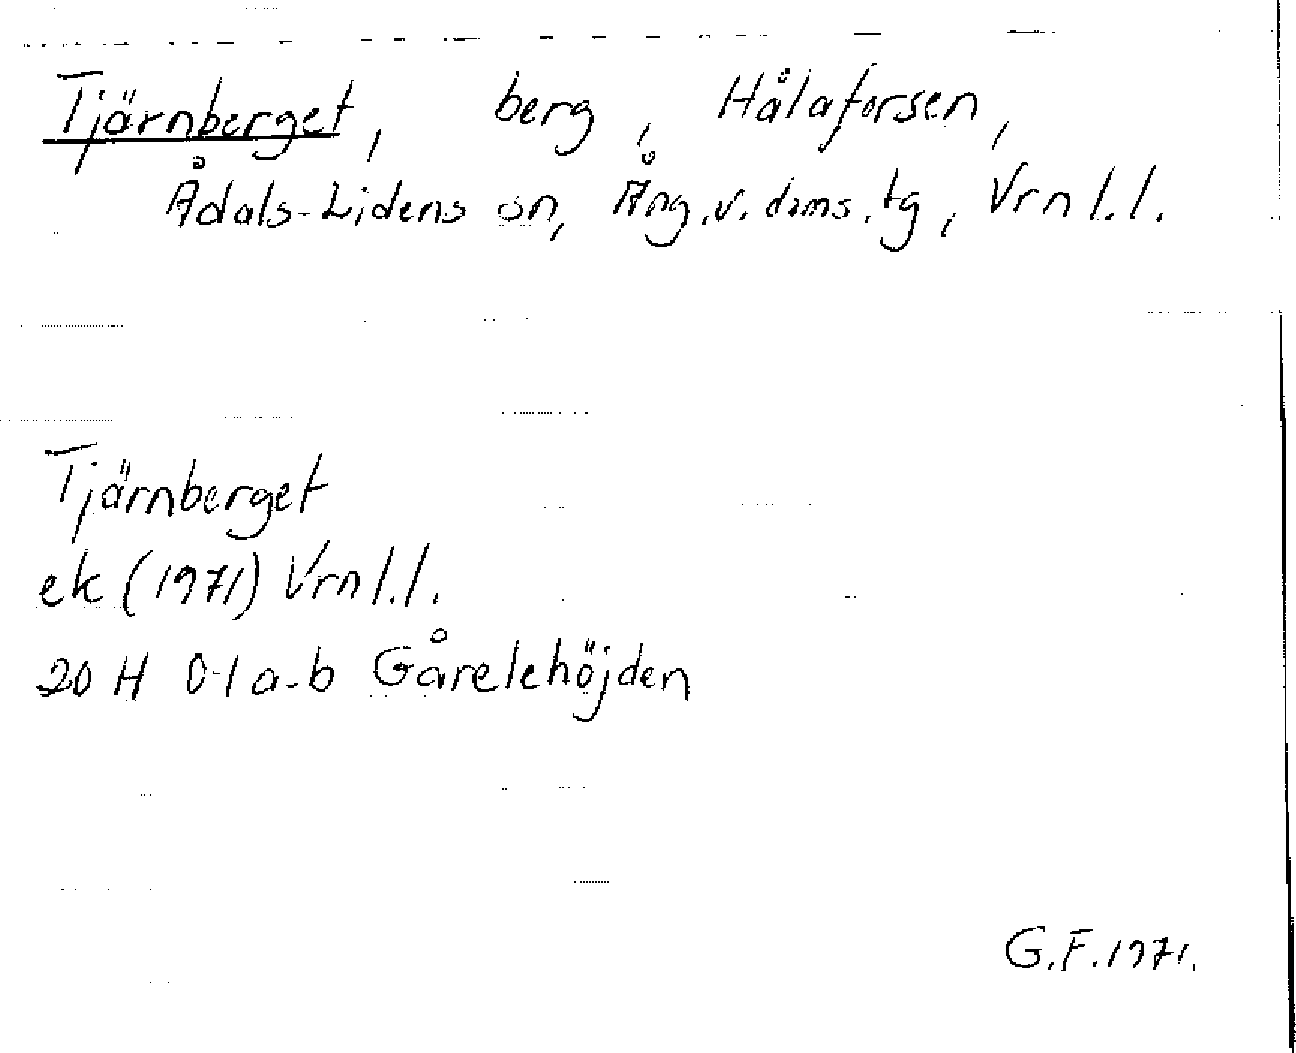 Tjärnberget, berg, Hålaforsen,
Ådals-Lidens sn, Ång.v. doms.tg, Vrn l.l.
Tjärnberget
ek (1971) Vrn l.l.
20 H 0-1 a-b Gårelehöjden
G.F.1971.